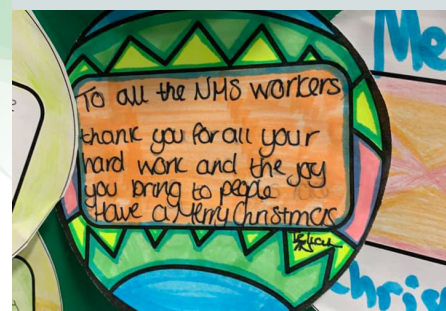 To all the NMS workers
thank you for all your
hard work and the joy
you bring to people
Have a Merry Christmas
Me
hris